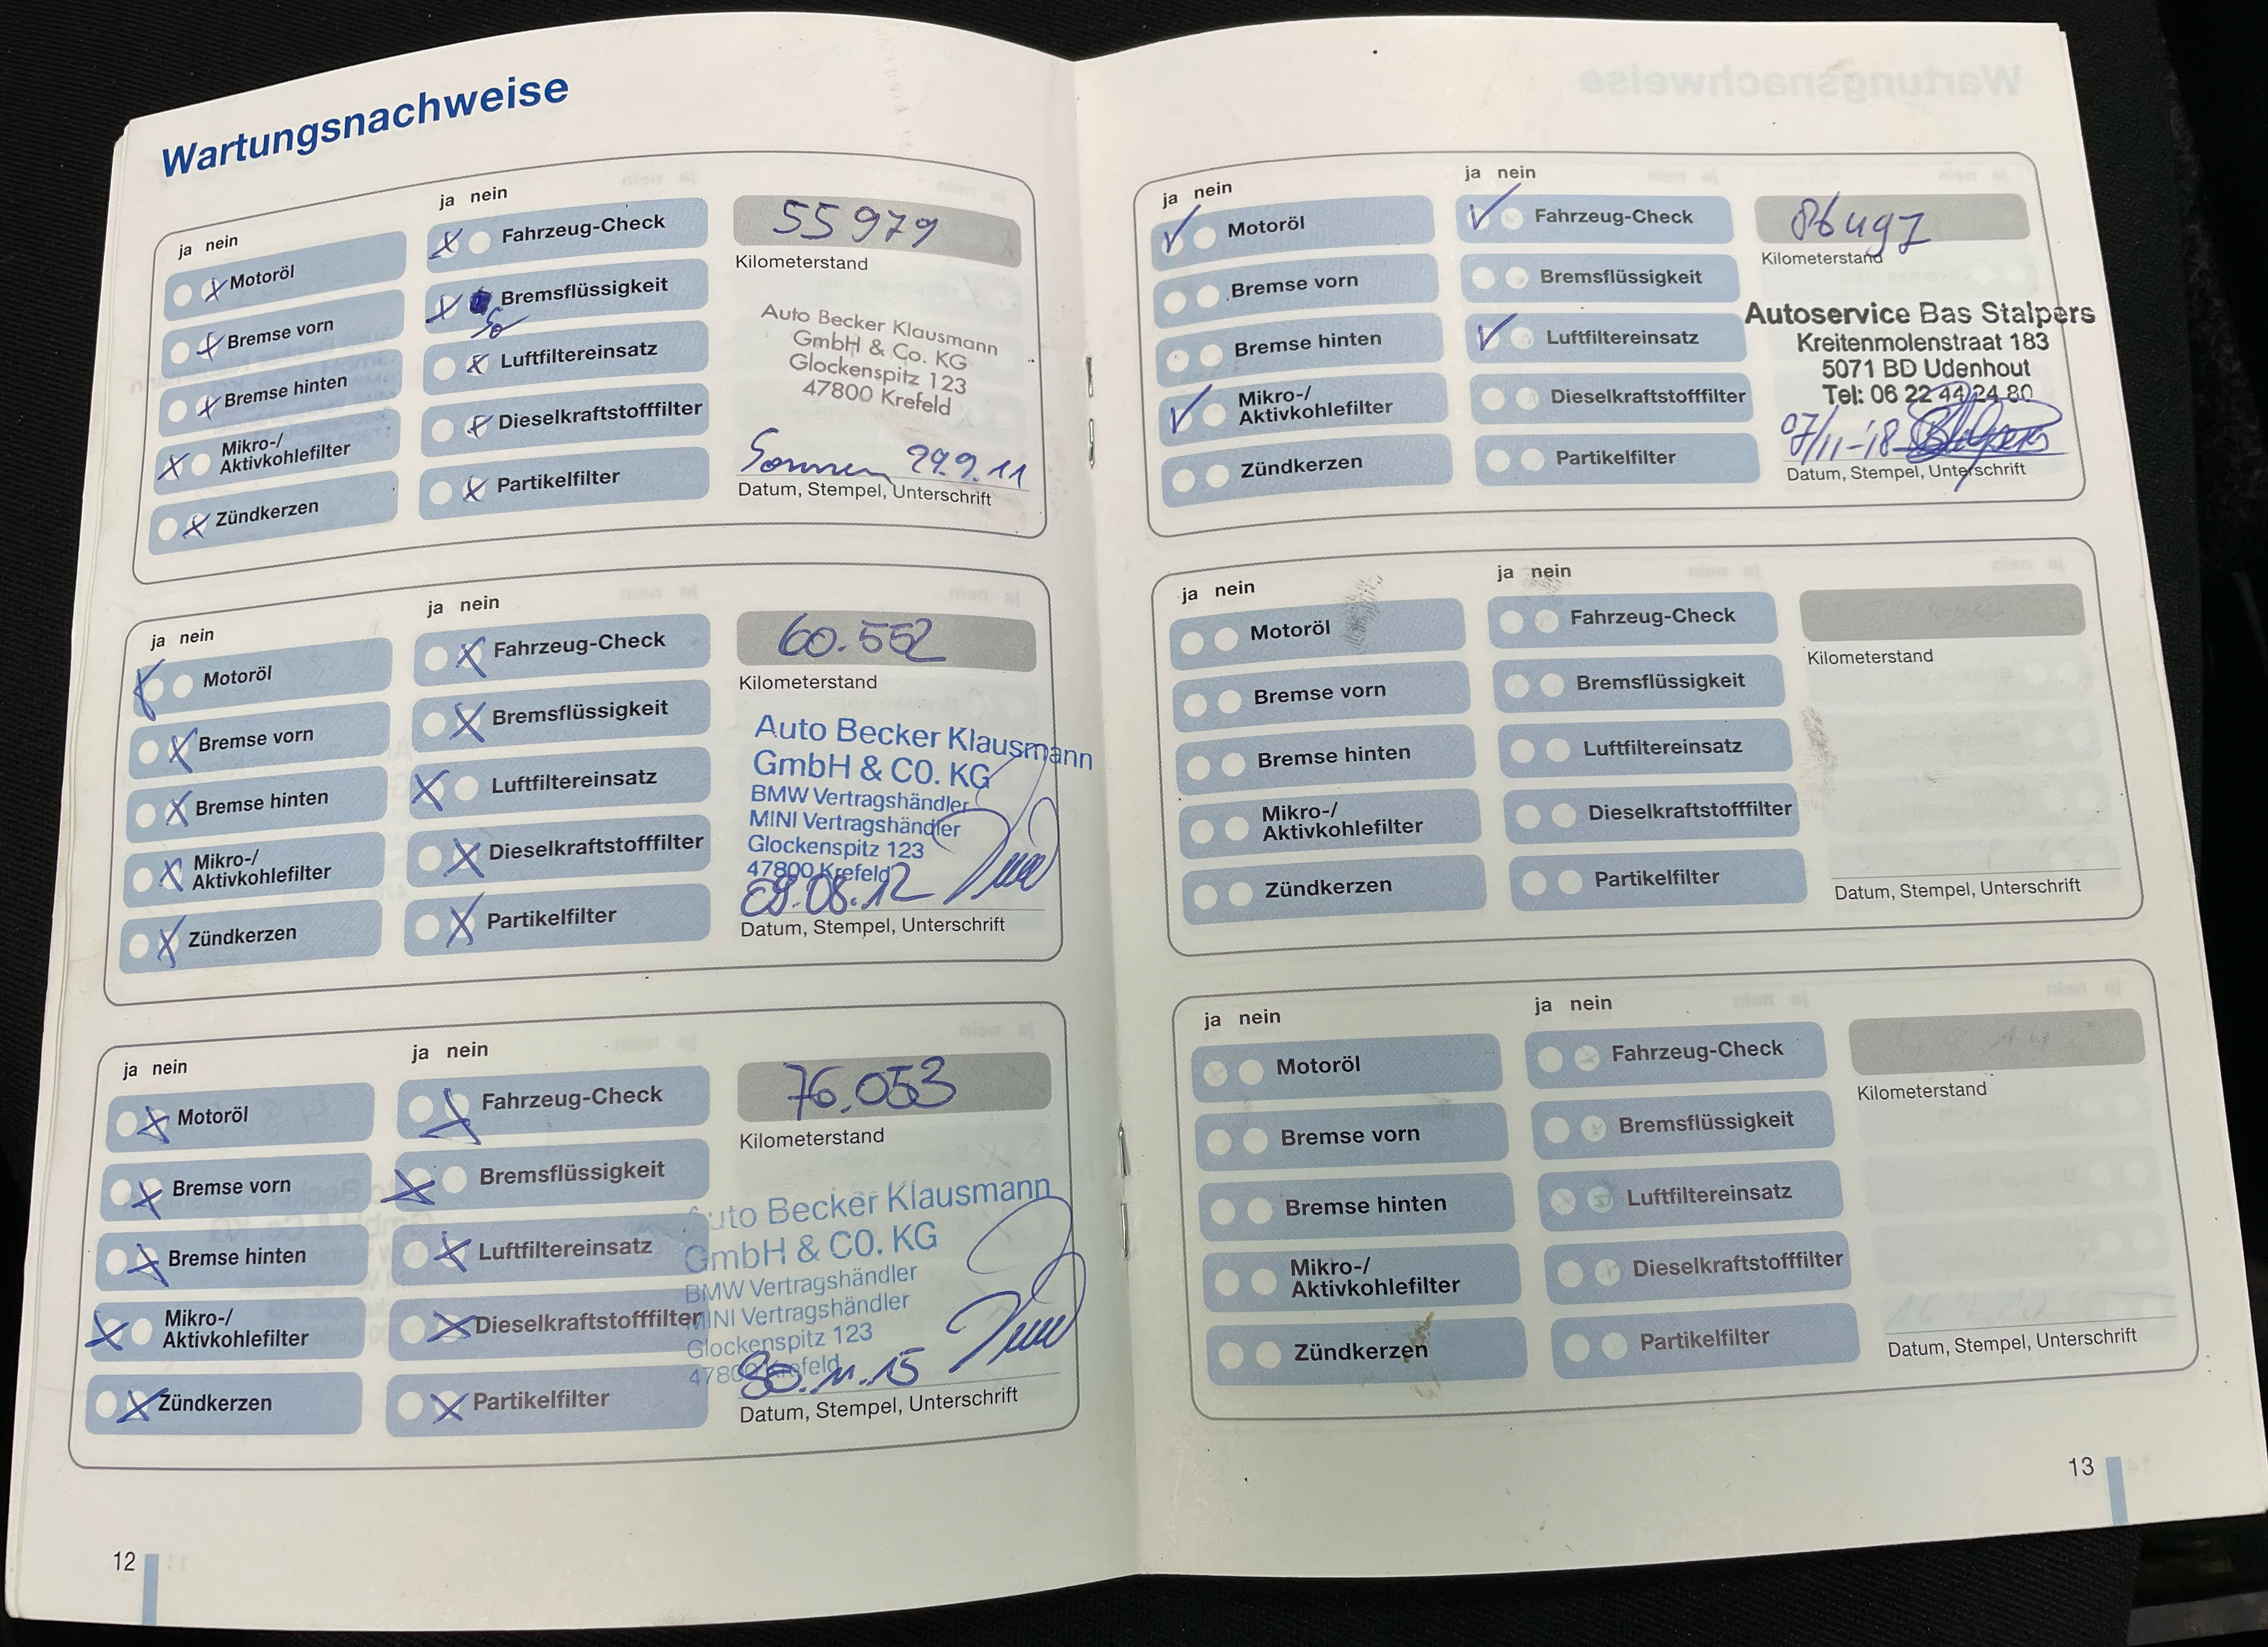 Wartungsnachweise
ja nein
Motoröl
Bremse vorn
Bremse hinten
Mikro-/
Aktivkohlefilter
Zündkerzen
ja nein
Fahrzeug-Check
Bremsflüssigkeit
Luftfiltereinsatz
Dieselkraftstofffilter
Partikelfilter
55979
Kilometerstand
Auto Becker Klausmann
GmbH & Co. KG
Glockenspitz 123
47800 Krefeld
29.9.11
Datum, Stempel, Unterschrift
ja nein
Motoröl
Bremse vorn
Bremse hinten
Mikro-/
Aktivkohlefilter
Zündkerzen
ja nein
Fahrzeug-Check
Bremsflüssigkeit
Luftfiltereinsatz
Dieselkraftstofffilter
Partikelfilter
60.552
Kilometerstand
Auto Becker Klausmann
GmbH & CO. KG
BMW Vertragshändler
MINI Vertragshändler
Glockenspitz 123
47800 Krefeld
09.08.12
Datum, Stempel, Unterschrift
ja nein
Motoröl
Bremse vorn
Bremse hinten
Mikro-/
Aktivkohlefilter
Zündkerzen
ja nein
Fahrzeug-Check
Bremsflüssigkeit
Luftfiltereinsatz
Dieselkraftstofffilter
Partikelfilter
76.053
Kilometerstand
Auto Becker Klausmann
GmbH & CO. KG
BMW Vertragshändler
MINI Vertragshändler
Glockenspitz 123
47800 Krefeld
30.11.15
Datum, Stempel, Unterschrift
12
ja nein
Motoröl
Bremse vorn
Bremse hinten
Mikro-/
Aktivkohlefilter
Zündkerzen
ja nein
Fahrzeug-Check
Bremsflüssigkeit
Luftfiltereinsatz
Dieselkraftstofffilter
Partikelfilter
86497
Kilometerstand
Autoservice Bas Stalpers
Kreitenmolenstraat 183
5071 BD Udenhout
Tel: 06 22 44 24 80
07/11-'18
Datum, Stempel, Unterschrift
ja nein
Motoröl
Bremse vorn
Bremse hinten
Mikro-/
Aktivkohlefilter
Zündkerzen
ja nein
Fahrzeug-Check
Bremsflüssigkeit
Luftfiltereinsatz
Dieselkraftstofffilter
Partikelfilter
Kilometerstand
Datum, Stempel, Unterschrift
ja nein
Motoröl
Bremse vorn
Bremse hinten
Mikro-/
Aktivkohlefilter
Zündkerzen
ja nein
Fahrzeug-Check
Bremsflüssigkeit
Luftfiltereinsatz
Dieselkraftstofffilter
Partikelfilter
Kilometerstand
Datum, Stempel, Unterschrift
13